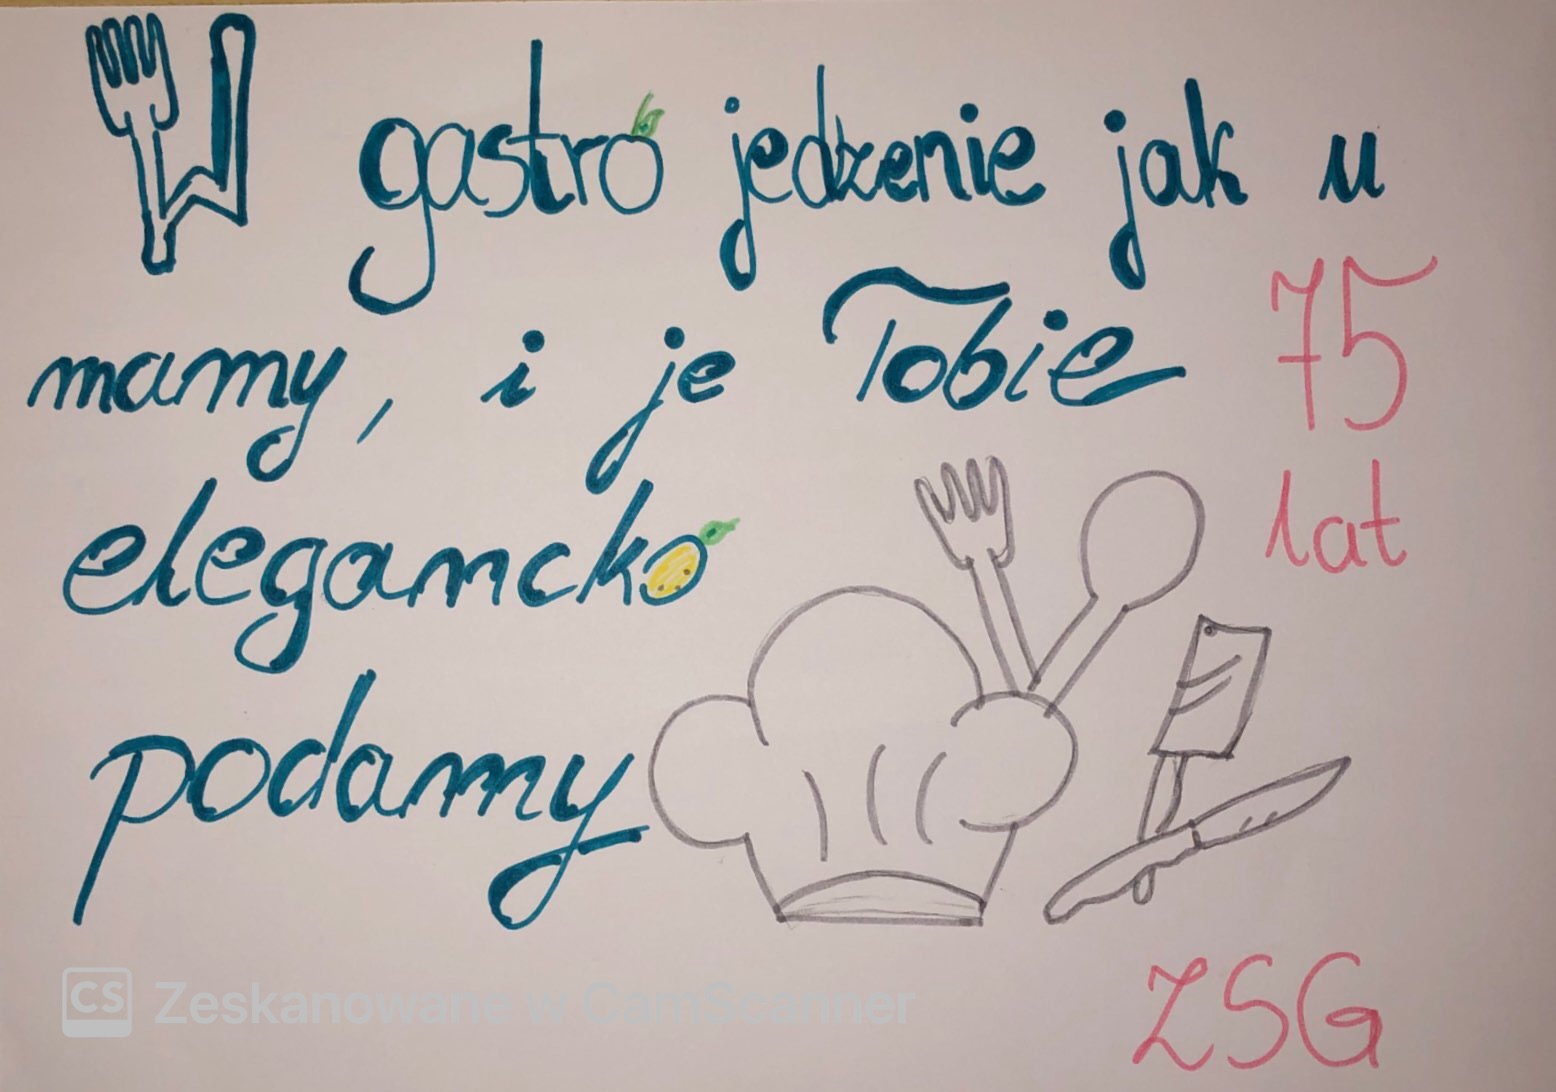 W gastro jedzenie jak u
mamy, i je Tobie
75
lat
elegancko
podamy
ZSG
CS Zeskanowane w CamScanner